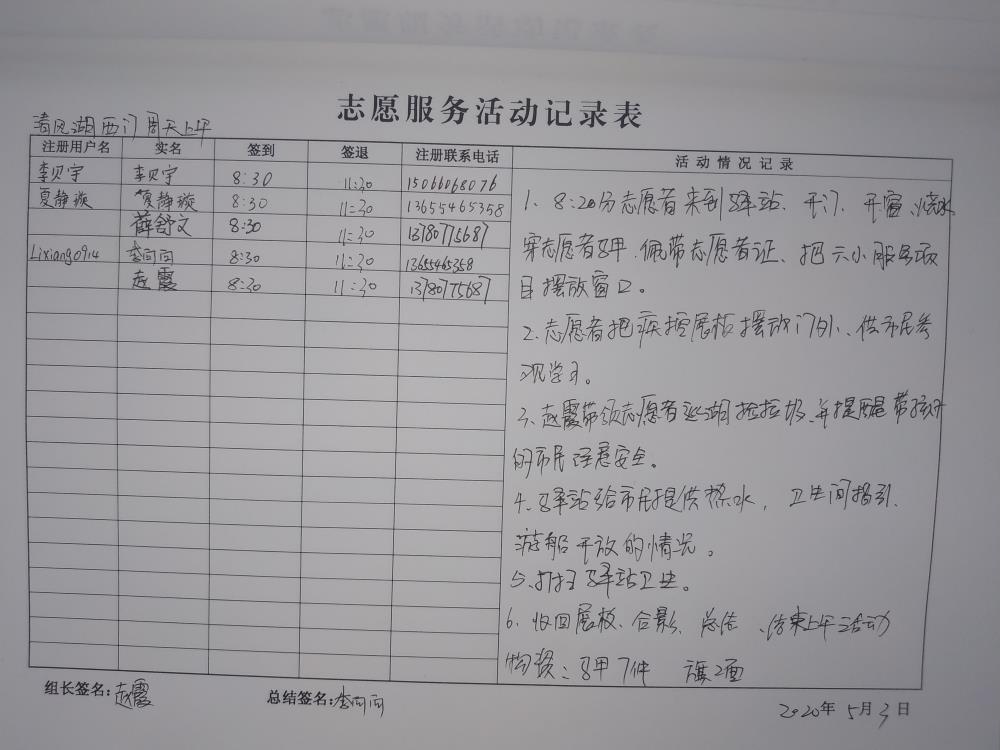 志愿服务活动记录表
清风湖西门 周天上午
注册用户名 实名 签到 签退 注册联系电话 活动情况记录
李贝宇 李贝宇 8:30 11:30 15066068076
夏静璇 夏静璇 8:30 11:30 13655465358
薛舒文 8:30 11:30 13780775687
Lixiang0914 李向向 8:30 11:30 13655465358
赵霞 8:30 11:30 13780775687
1、8:20分志愿者来到驿站、开门、开窗、烧水
穿志愿者马甲.佩带志愿者证、把六小服务项
目摆放窗口。
2.志愿者把疾控展板摆放门外、供市民参
观学习。
3、赵霞带领志愿者巡湖捡垃圾、并提醒带孩子
的市民注意安全。
4、驿站给市民提供热水，卫生间指引.
游船开放的情况。
5、打扫驿站卫生。
6、收回展板、合影、总结、结束上午活动
物资：马甲7件 旗2面
组长签名:赵霞 总结签名:李向向
2020年5月3日